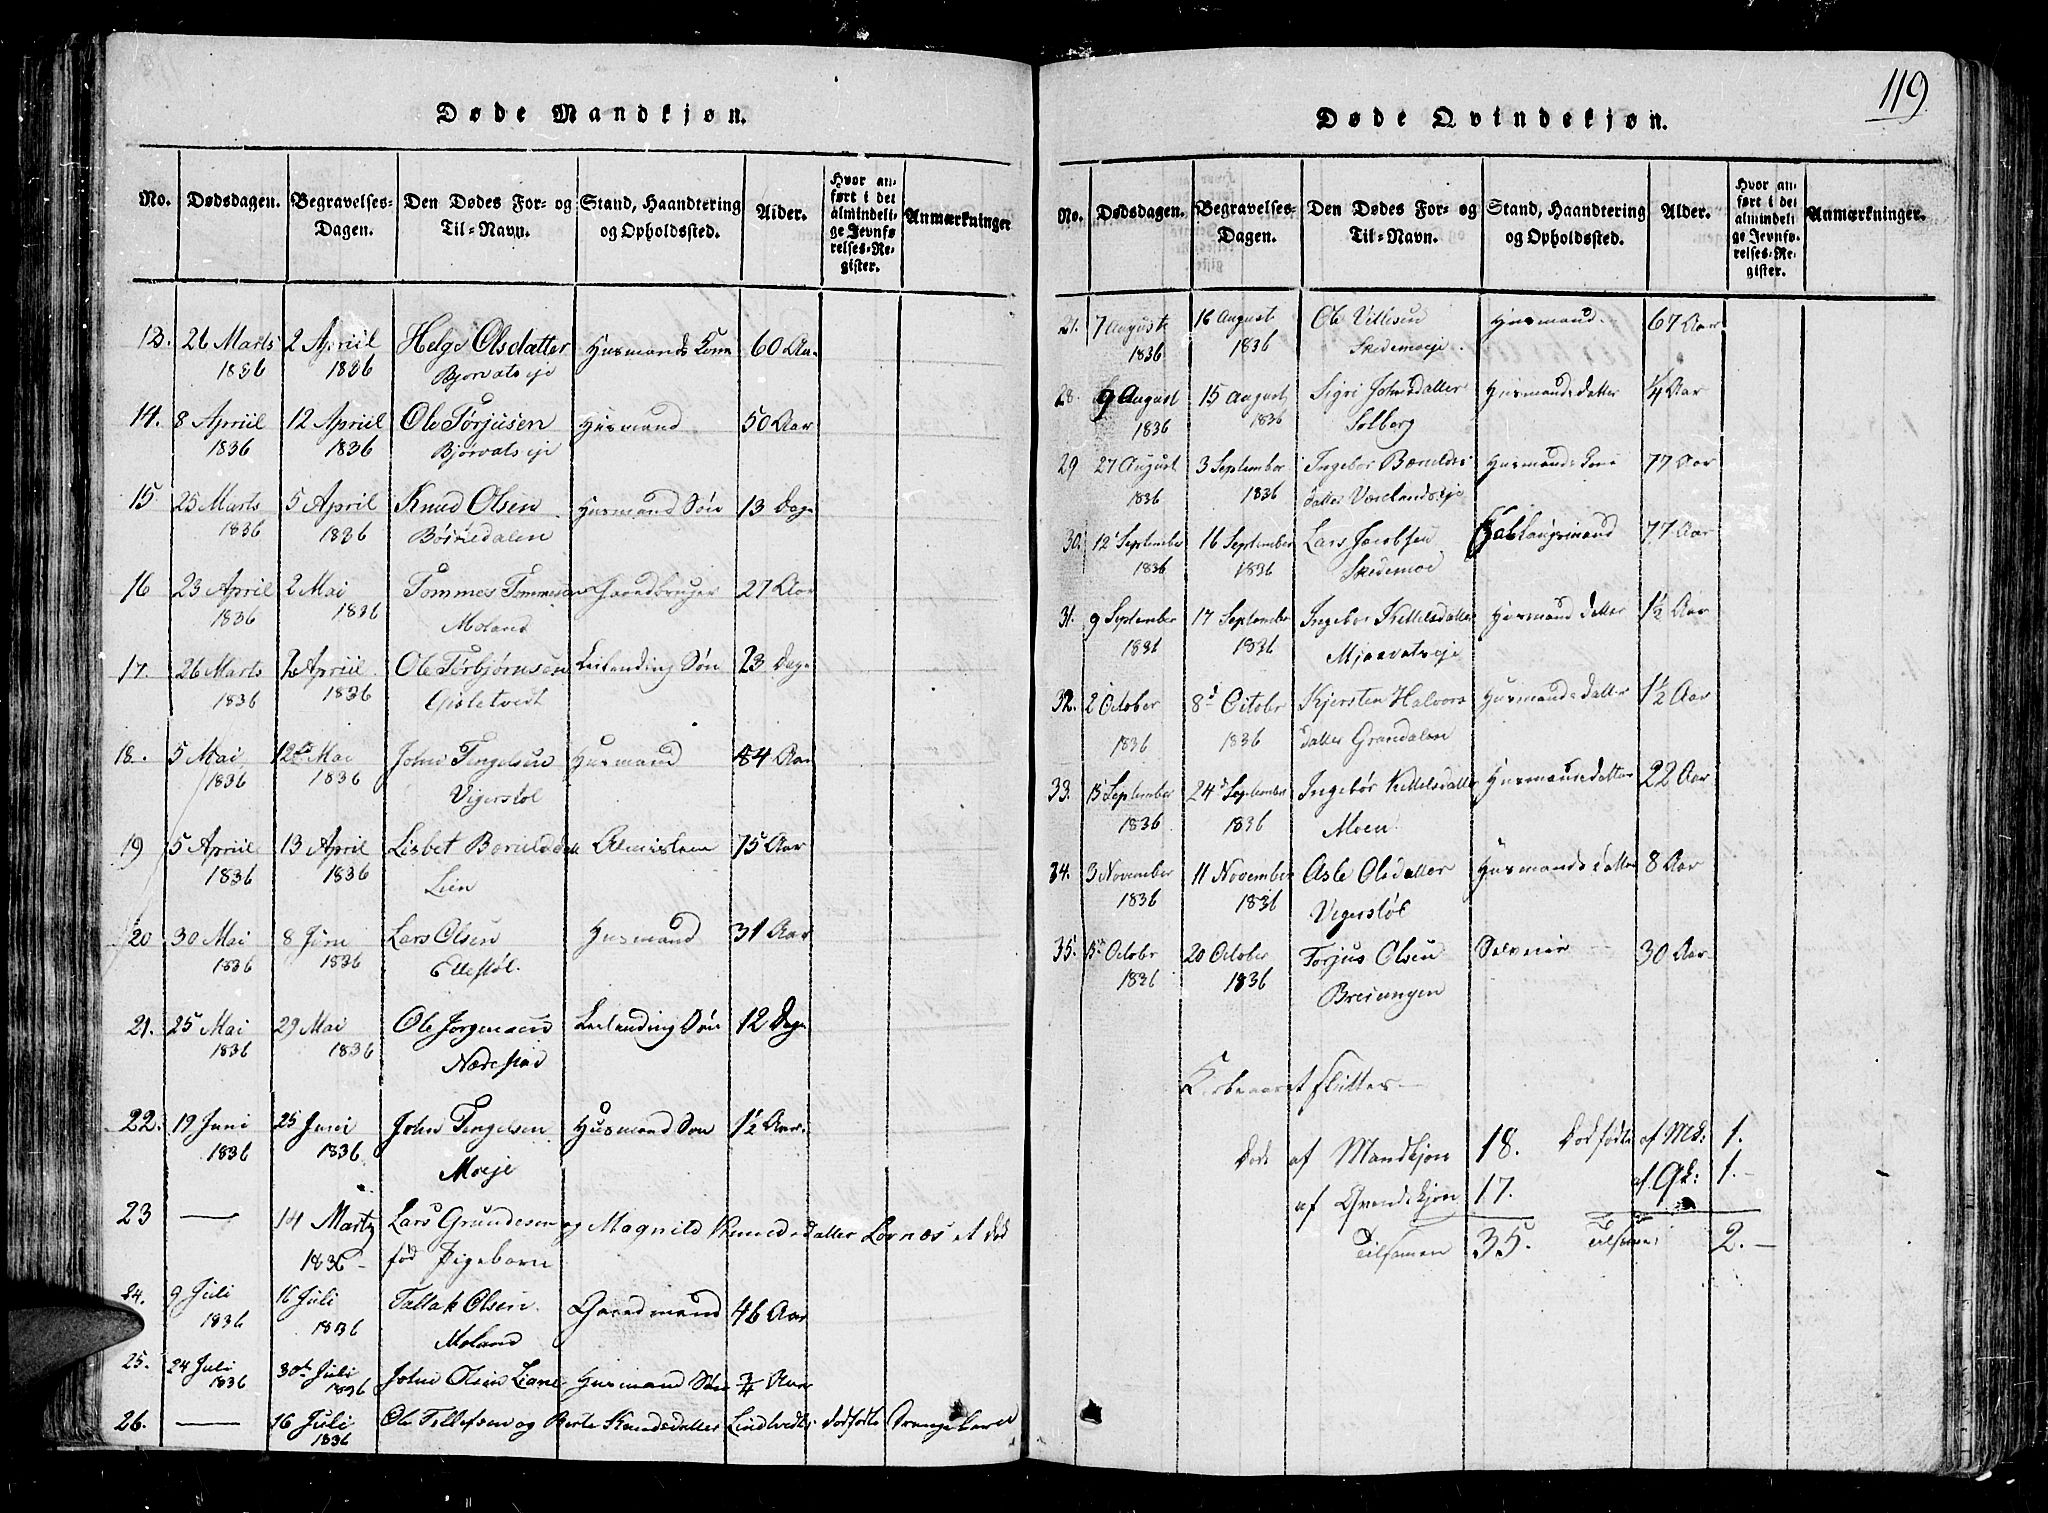 Døde Mandkjøn.
No. Dødsdagen. Begravelses-Dagen. Den Dødes For- og Til-Navn. Stand, Haandtering og Opholdssted. Alder. Hvor anført i det almindelige Jevnførelses-Register. Anmærkninger
13. 26 Marts 2 Apriil Helge Olsdatter Husmands Kone 60 Aar
1836 1836 Bjorvatseje
14. 8 Apriil 12 Apriil Ole Torjusen Husmand 50 Aar
1836 1836 Bjorvatseje
15. 25 Marts 5 April Knud Olsen Husmand Søn 13 Dage
1836 1836
16 23 April 2 Mai Tommes Tommesen Gaardbruger 27 Aar
1836 1836 Moland
17. 26 Marts 2 Apriil Ole Torbjørnsen Leilending Søn 23 Dage
1836 1836
18. 5 Mai 12 Mai John Tengelsen Husmand 84 Aar
1836 1836 Vigerstøl
19 5 Apriil 13 April Lisbet 75 Aar
1836 1836 Lien
20 30 Mai 8 Juni Lars Olsen Husmand 31 Aar
1836 1836 Ellestøl.
21. 25 Mai 29 Mai Ole Jørgensen Leilending Søn 12 Dage
1836 1836 Nærestad
22. 19 Juni 25 Juni John Tengelsen Husmand Son 1½ Aar.
1836 1836. Moeje
23 — 14 Marts Lars Grundesen og Magnild Knudsdatter Lornæs et død
1836 — fød Pigebarn
24. 9 Juli 16 Juli Tallak Olsen. Gaardmand 46 Aar
1836 1836 Moland
25. 24 Juli 30te Juli John Olsen Liane Husmand Søn ¾ Aar
1836 1836
26. — 16 Juli Ole Tellefsen og Berte Knudsdatter dødfødte Drengebarn
1836
119
Døde Qvindekjøn.
No. Dødsdagen. Begravelses-Dagen. Den Dødes For- og Til-Navn. Stand, Haandtering og Opholdssted. Alder. Hvor anført i det almindelige Jevnførelses-Register. Anmærkninger.
7 Auguste 16 August Ole Villesen Husmand. 67 Aar
1836 1836 Skedemoeje.
28. 9 August 15 August Sigri Johnsdatter Husmandsdatter ¼ Aar
1836 1836 Solberg
29 27 August 3 September Ingebor Husmandskone 77 Aar
1836 1836 datter
30. 12 September 16 September Lars Jacobsen 77 Aar
1836 1836 Skedemoe
31. 9 September 17 September Ingebor Kittelsdatter Husmand datter 1½ Aar
1836 1836 Mjaavatseje
32. 2 October 8d October Kjersten Halvors Husmandsdatter 1½ Aar
1836 1836 datter Grandalen
33. 15 September 24d September Ingebør Kittelsdatter Husmandsdatter 22 Aar
1836 1836 Moen
34. 3 November 11 November Asle Olsdatter Husmandsdatter 8 Aar
1836 1836 Vegerstøl
35. October 20 October Torjus Olsen Selveier 30 Aar
1836 1836 Breiungen
Kirkeaaret slutter.
Døde af Mandkjøn 18. Dødfødte af Mk: 1.
af Qvindekjøn 17. af Qk: 1. —
Tilsamen 35. Tilsamen 2. —